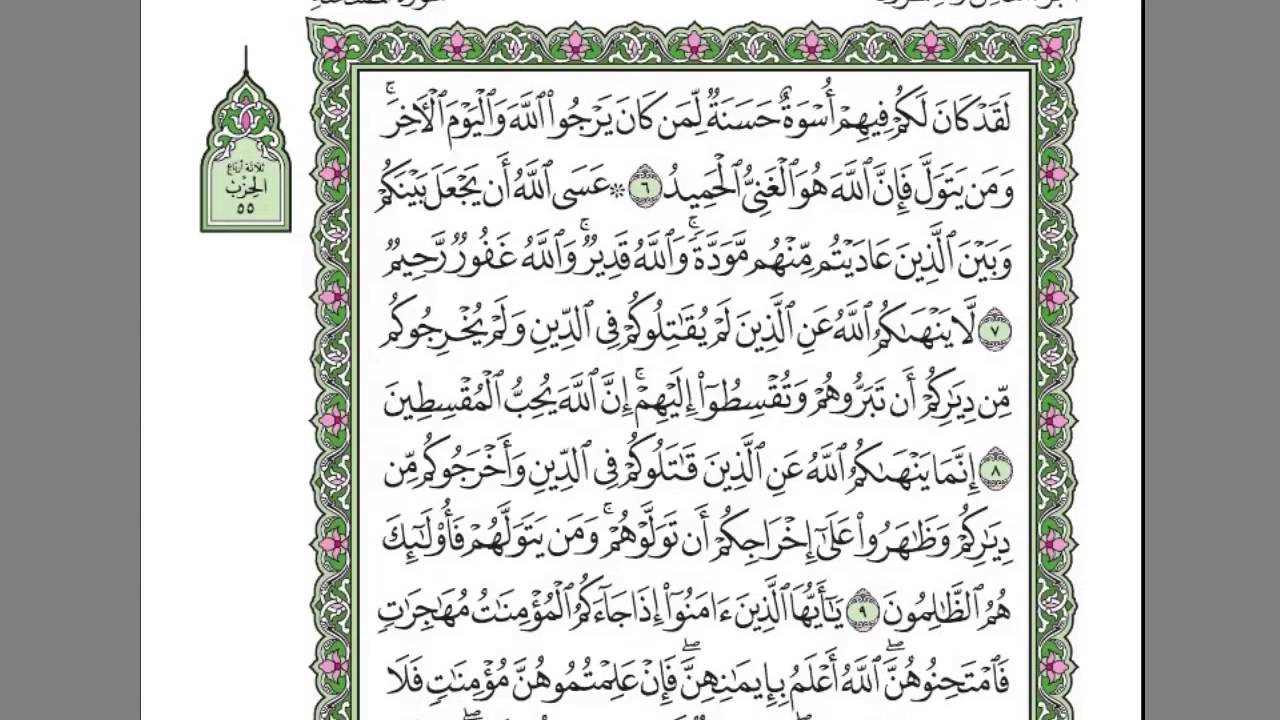 لَقَدْ كَانَ لَكُمْ فِيهِمْ أُسْوَةٌ حَسَنَةٌ لِّمَن كَانَ يَرْجُوا۟ ٱللَّهَ وَٱلْيَوْمَ ٱلْـَٔاخِرَ ۚ
وَمَن يَتَوَلَّ فَإِنَّ ٱللَّهَ هُوَ ٱلْغَنِىُّ ٱلْحَمِيدُ ٦ ۞ عَسَى ٱللَّهُ أَن يَجْعَلَ بَيْنَكُمْ
وَبَيْنَ ٱلَّذِينَ عَادَيْتُم مِّنْهُم مَّوَدَّةً ۚ وَٱللَّهُ قَدِيرٌ ۚ وَٱللَّهُ غَفُورٌ رَّحِيمٌ
٧ لَّا يَنْهَىٰكُمُ ٱللَّهُ عَنِ ٱلَّذِينَ لَمْ يُقَـٰتِلُوكُمْ فِى ٱلدِّينِ وَلَمْ يُخْرِجُوكُم
مِّن دِيَـٰرِكُمْ أَن تَبَرُّوهُمْ وَتُقْسِطُوٓا۟ إِلَيْهِمْ ۚ إِنَّ ٱللَّهَ يُحِبُّ ٱلْمُقْسِطِينَ
٨ إِنَّمَا يَنْهَىٰكُمُ ٱللَّهُ عَنِ ٱلَّذِينَ قَـٰتَلُوكُمْ فِى ٱلدِّينِ وَأَخْرَجُوكُم مِّن
دِيَـٰرِكُمْ وَظَـٰهَرُوا۟ عَلَىٰٓ إِخْرَاجِكُمْ أَن تَوَلَّوْهُمْ ۚ وَمَن يَتَوَلَّهُمْ فَأُو۟لَـٰٓئِكَ
هُمُ ٱلظَّـٰلِمُونَ ٩ يَـٰٓأَيُّهَا ٱلَّذِينَ ءَامَنُوٓا۟ إِذَا جَآءَكُمُ ٱلْمُؤْمِنَـٰتُ مُهَـٰجِرَٰتٍ
فَٱمْتَحِنُوهُنَّ ۖ ٱللَّهُ أَعْلَمُ بِإِيمَـٰنِهِنَّ ۖ فَإِنْ عَلِمْتُمُوهُنَّ مُؤْمِنَـٰتٍ فَلَا
ثلاثة أرباع
الحِزْبِ
٥٥